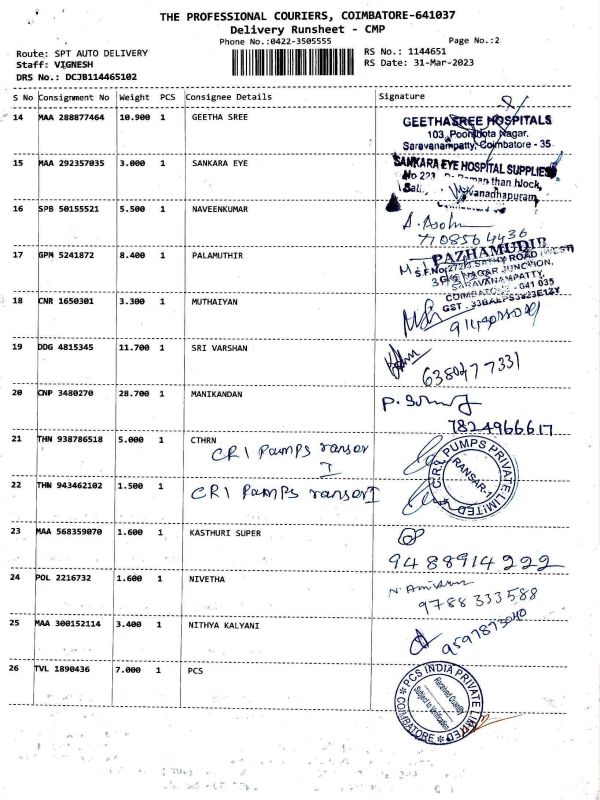 THE PROFESSIONAL COURIERS, COIMBATORE-641037
Delivery Runsheet - CMP
Phone No.:0422-3505555
Page No.:2
Route: SPT AUTO DELIVERY
RS No.: 1144651
Staff: VIGNESH
RS Date: 31-Mar-2023
DRS No.: DCJB114465102
S No Consignment No Weight PCS Consignee Details Signature
14 MAA 288877464 10.900 1 GEETHA SREE
GEETHASREE HOSPITALS
103, Poonthota Nagar,
Saravanampatty, Coimbatore - 35
15 MAA 292357035 3.000 1 SANKARA EYE
SANKARA EYE HOSPITAL SUPPLIES
No 223
16 SPB 50155521 5.500 1 NAVEENKUMAR
7708564436
17 GPM 5241872 8.400 1 PALAMUTHIR
PAZHAMUDIR
S.F.No:272/3 SATHY ROAD (WEST)
NAGAR JUNCTION,
SARAVANAMPATTY,
COIMBATORE - 641 035
18 CNR 1650301 3.300 1 MUTHAIYAN
19 DDG 4815345 11.700 1 SRI VARSHAN
20 CNP 3480270 28.700 1 MANIKANDAN
7824966617
21 THN 938786518 5.000 1 CTHRN
CRI Pumps ransar
I
C.R.I. PUMPS PRIVATE LIMITED
RANSAR-1
22 THN 943462102 1.500 1 CRI Pumps ransar I
23 MAA 568359070 1.600 1 KASTHURI SUPER
9488914222
24 POL 2216732 1.600 1 NIVETHA
9788333588
25 MAA 300152114 3.400 1 NITHYA KALYANI
9597873040
26 TVL 1890436 7.000 1 PCS
PCS INDIA PRIVATE LIMITED
COIMBATORE
Received Quantity
Subject to Verification